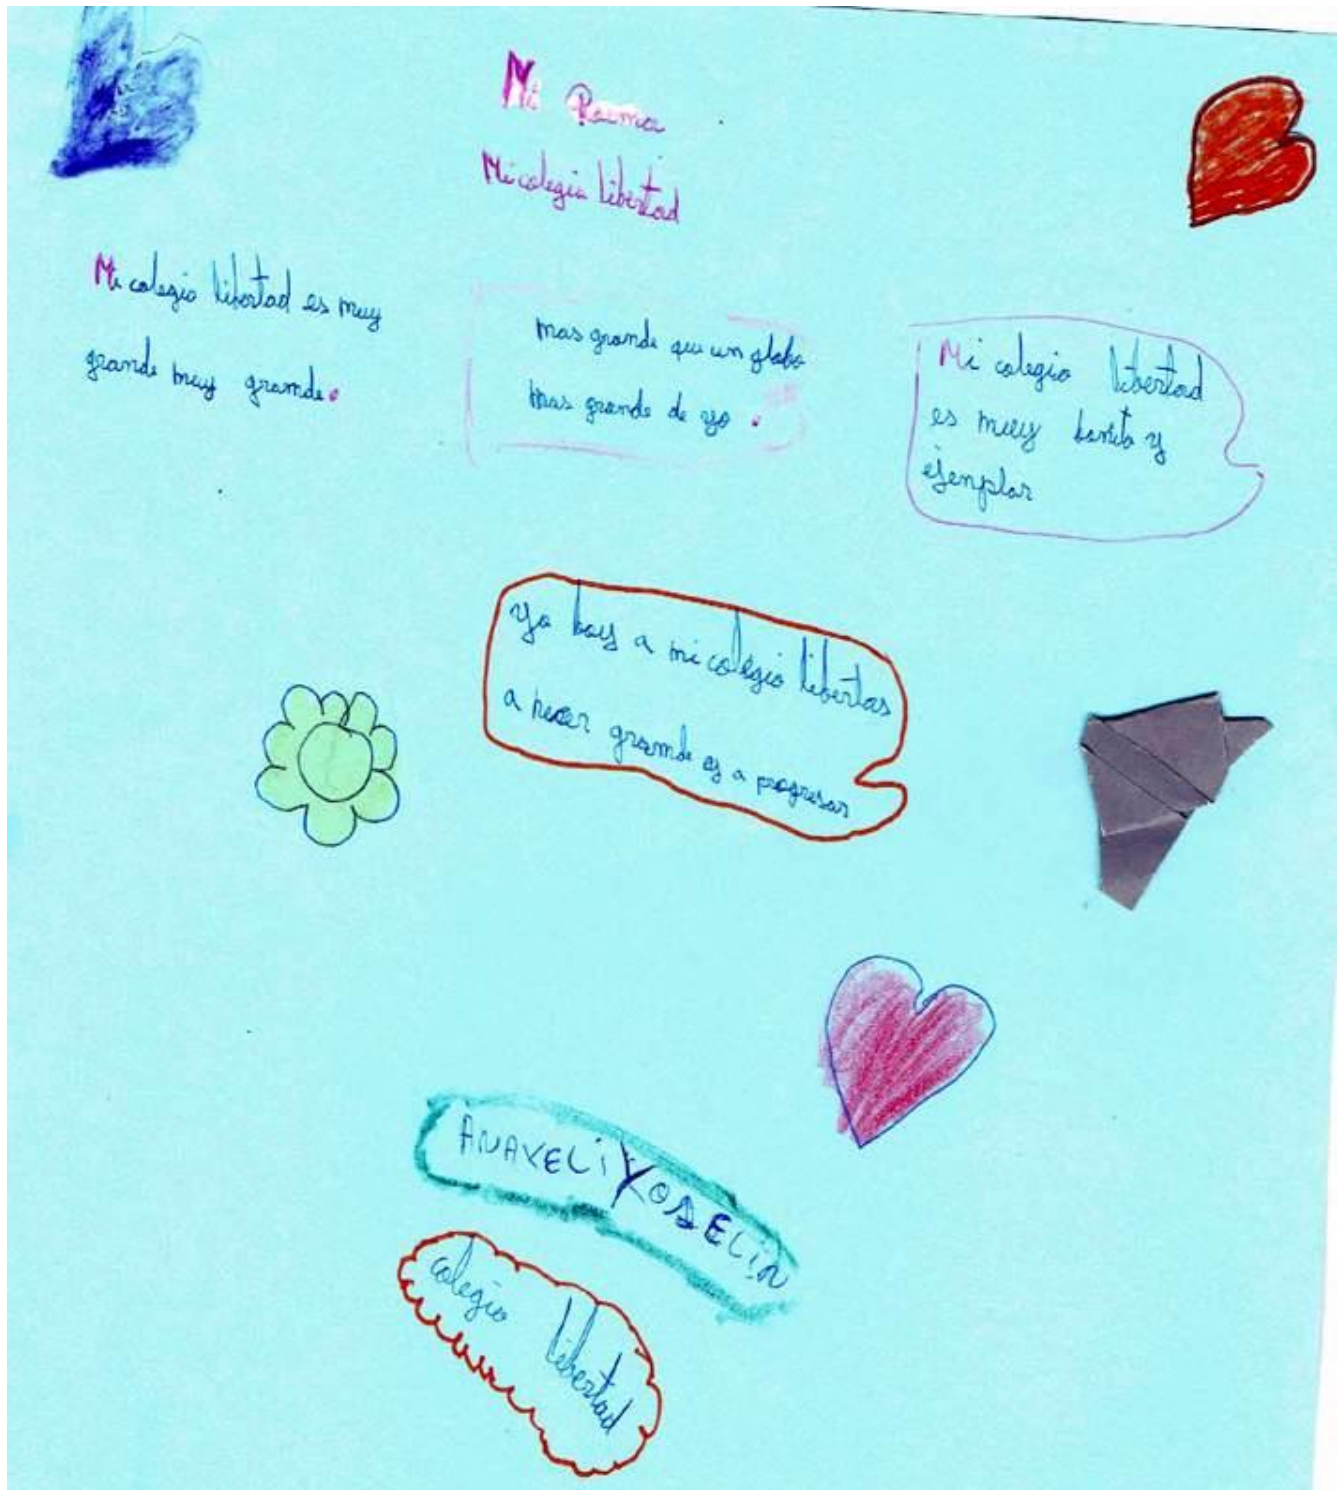 Mi Poema
Mi colegio libertad
Mi colegio libertad es muy
grande muy grande.
mas grande que un globo
mas grande de yo.
Mi colegio libertad
es muy bonito y
ejenplar
yo boy a mi colegio libertas
a hecer grande ey a progresar
ANAVELI YOSELIN
colegio libertad